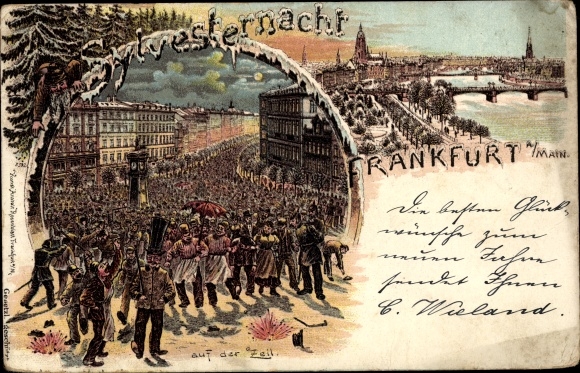 Sylvesternacht
FRANKFURT a/MAIN.
Die besten Glück-
wünsche zum
neuen Jahre
sendet Ihnen
C. Wieland.
auf der Zeil.